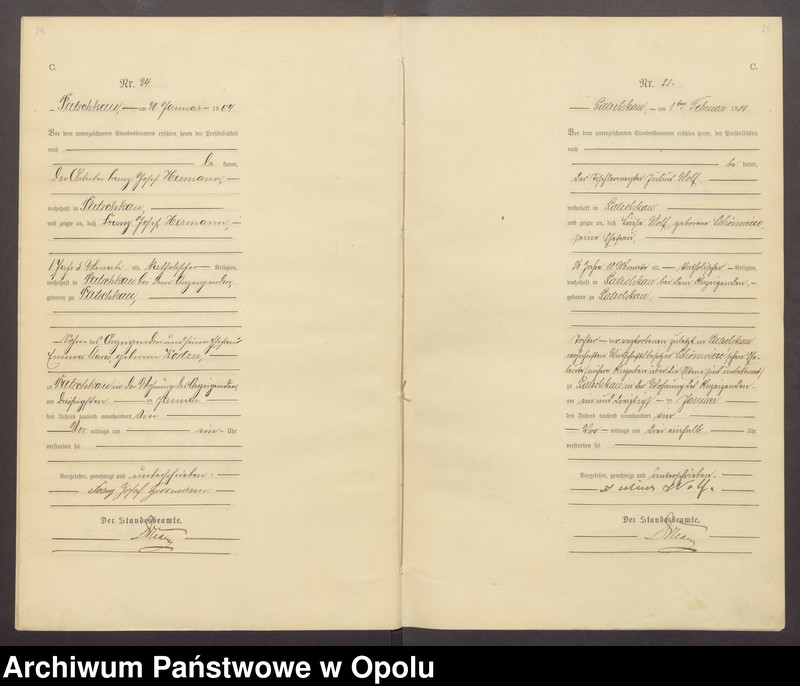 24
C.
Nr. 24.
Patschkau, am 30. Januar 1904
Vor dem unterzeichneten Standesbeamten erschien heute der Persönlichkeit
nach
be kannt,
Der Arbeiter Franz Josef Hermann,
wohnhaft in Patschkau,
und zeigte an, daß Franz Josef Hermann,
1 Jahr 3 Monate alt, katholischer Religion,
wohnhaft in Patschkau bei dem Anzeigenden,
geboren zu Patschkau,
Sohn des Anzeigenden und seiner Ehefrau
Emma Maria geborene
zu Patschkau in der Wohnung des Anzeigenden,
am dreißigsten Januar
des Jahres tausend neunhundert vier
Vor mittags um Uhr
verstorben sei.
Vorgelesen, genehmigt und unterschrieben.
Franz Josef Herrmann
Der Standesbeamte.
25
C.
Nr. 25.
Patschkau, am 1ten Februar 1904
Vor dem unterzeichneten Standesbeamten erschien heute, der Persönlichkeit
nach
be kannt,
der Tischlermeister Julius Wolf,
wohnhaft in Patschkau
und zeigte an, daß Wolf, geborene
seine Ehefrau,
Jahre 10 Monate alt, katholischer Religion,
wohnhaft in Patschkau bei dem Anzeigenden,
geboren zu Patschkau,
Tochter der verstorbenen zuletzt in Patschkau
wohnhaften
zu Patschkau in der Wohnung des Anzeigenden
am ein und dreißigsten Januar
des Jahres tausend neunhundert vier
Vor mittags um drei einhalb Uhr
verstorben sei.
Vorgelesen, genehmigt und unterschrieben.
Julius Wolf.
Der Standesbeamte.
Archiwum Państwowe w Opolu